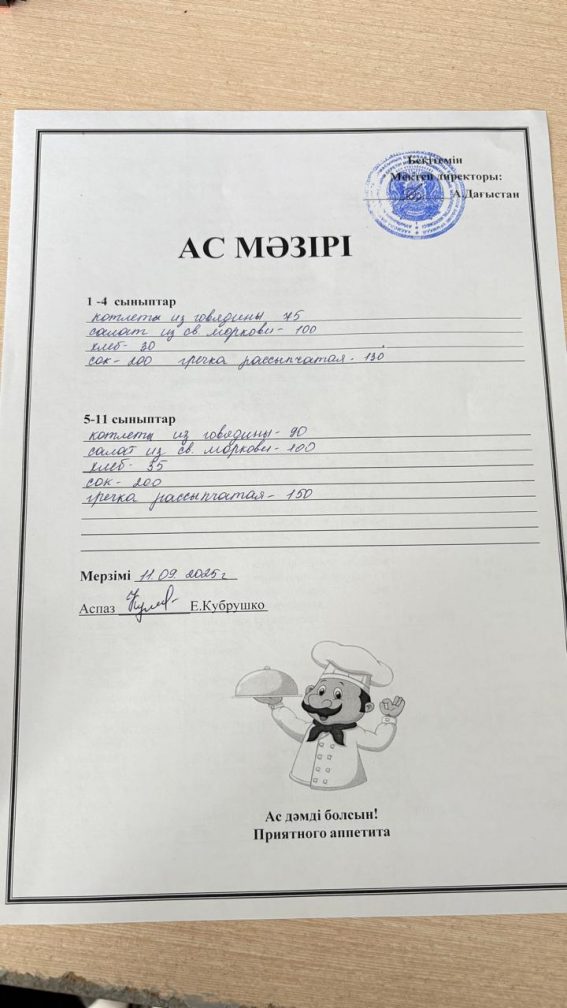 Бекітемін
Мектеп директоры:
А.Дағыстан
АС МӘЗІРІ
1 -4 сыныптар
котлеты из говядины 75
салат из св моркови - 100
хлеб - 30
сок - 200 гречка рассыпчатая - 130
5-11 сыныптар
котлеты из говядины - 90
салат из св. моркови - 100
хлеб - 35
сок - 200
гречка рассыпчатая - 150
Мерзімі 11.09.2025 г
Аспаз Е.Кубрушко
Ас дәмді болсын!
Приятного аппетита